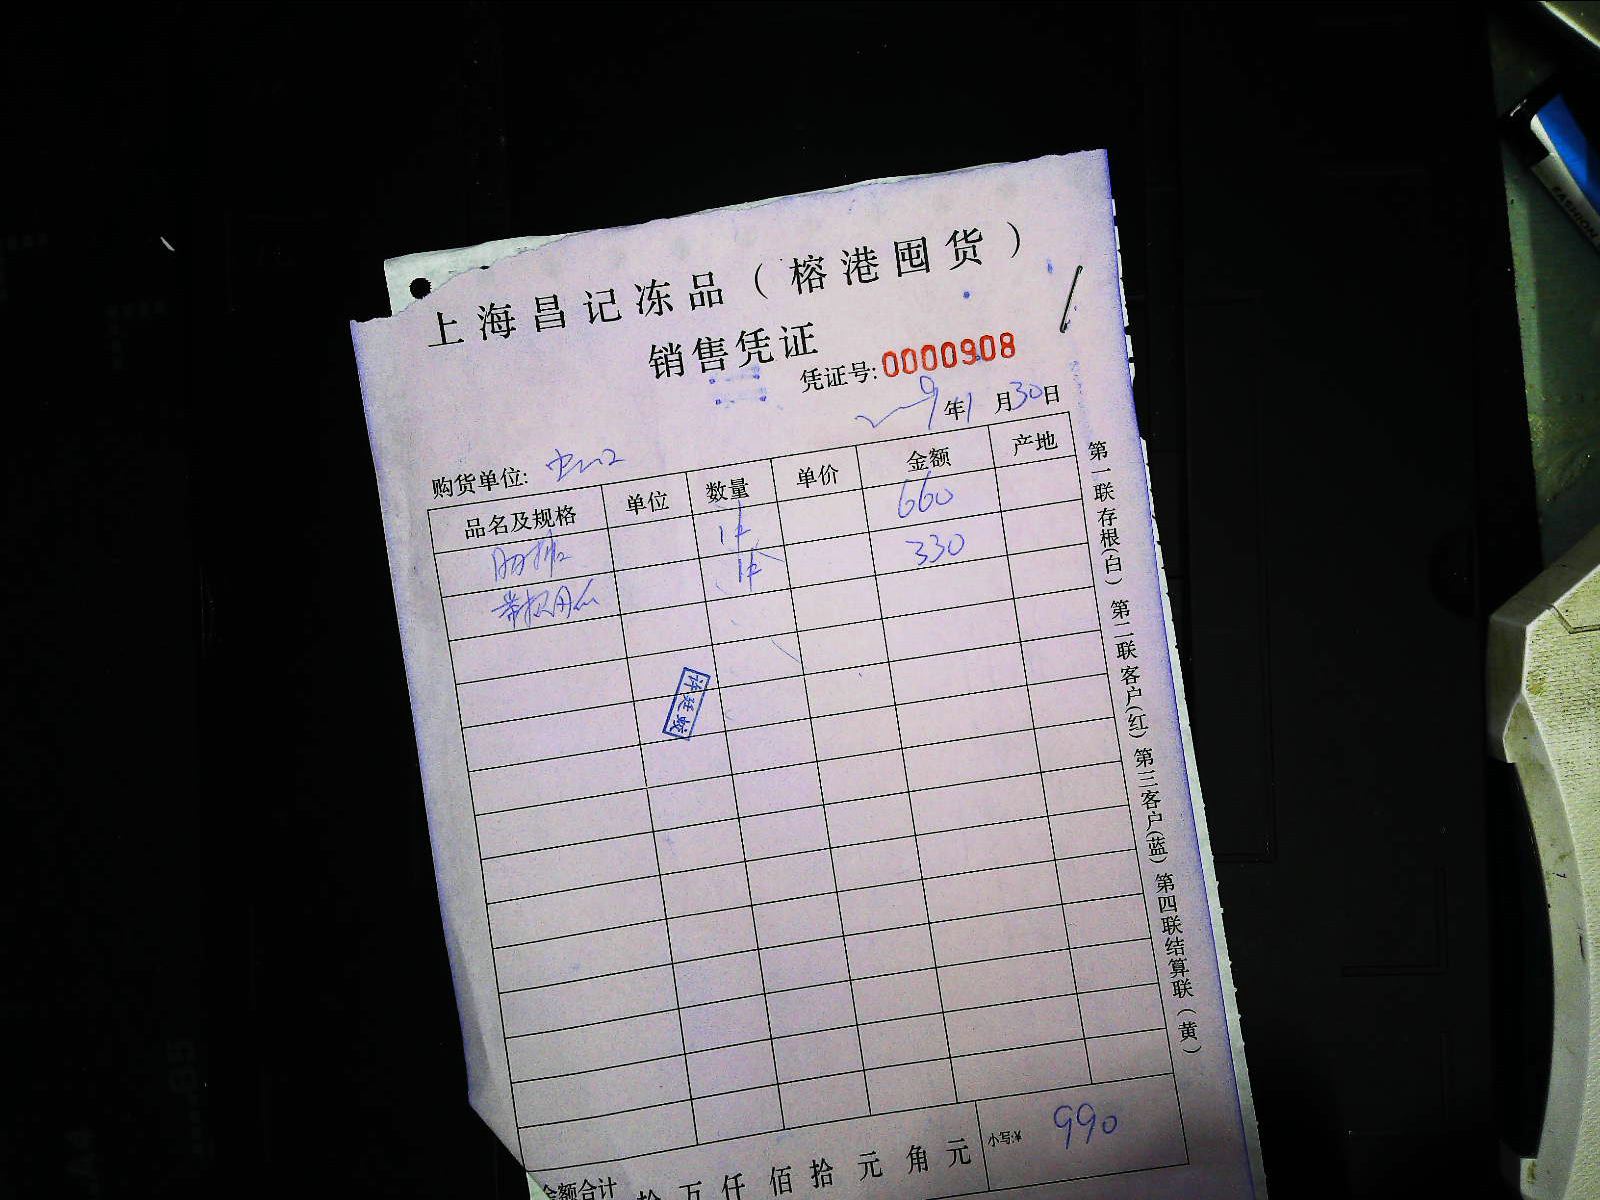 上海昌记冻品（榕港囤货）
销售凭证
凭证号:0000908
年1月30日
购货单位:
品名及规格 单位 数量 单价 金额 产地
肋排 1件 660
1件 330
金额合计 拾万仟佰拾元角元 小写:¥ 990
第一联存根(白) 第二联客户(红) 第三客户(蓝) 第四联结算联(黄)
FASHION